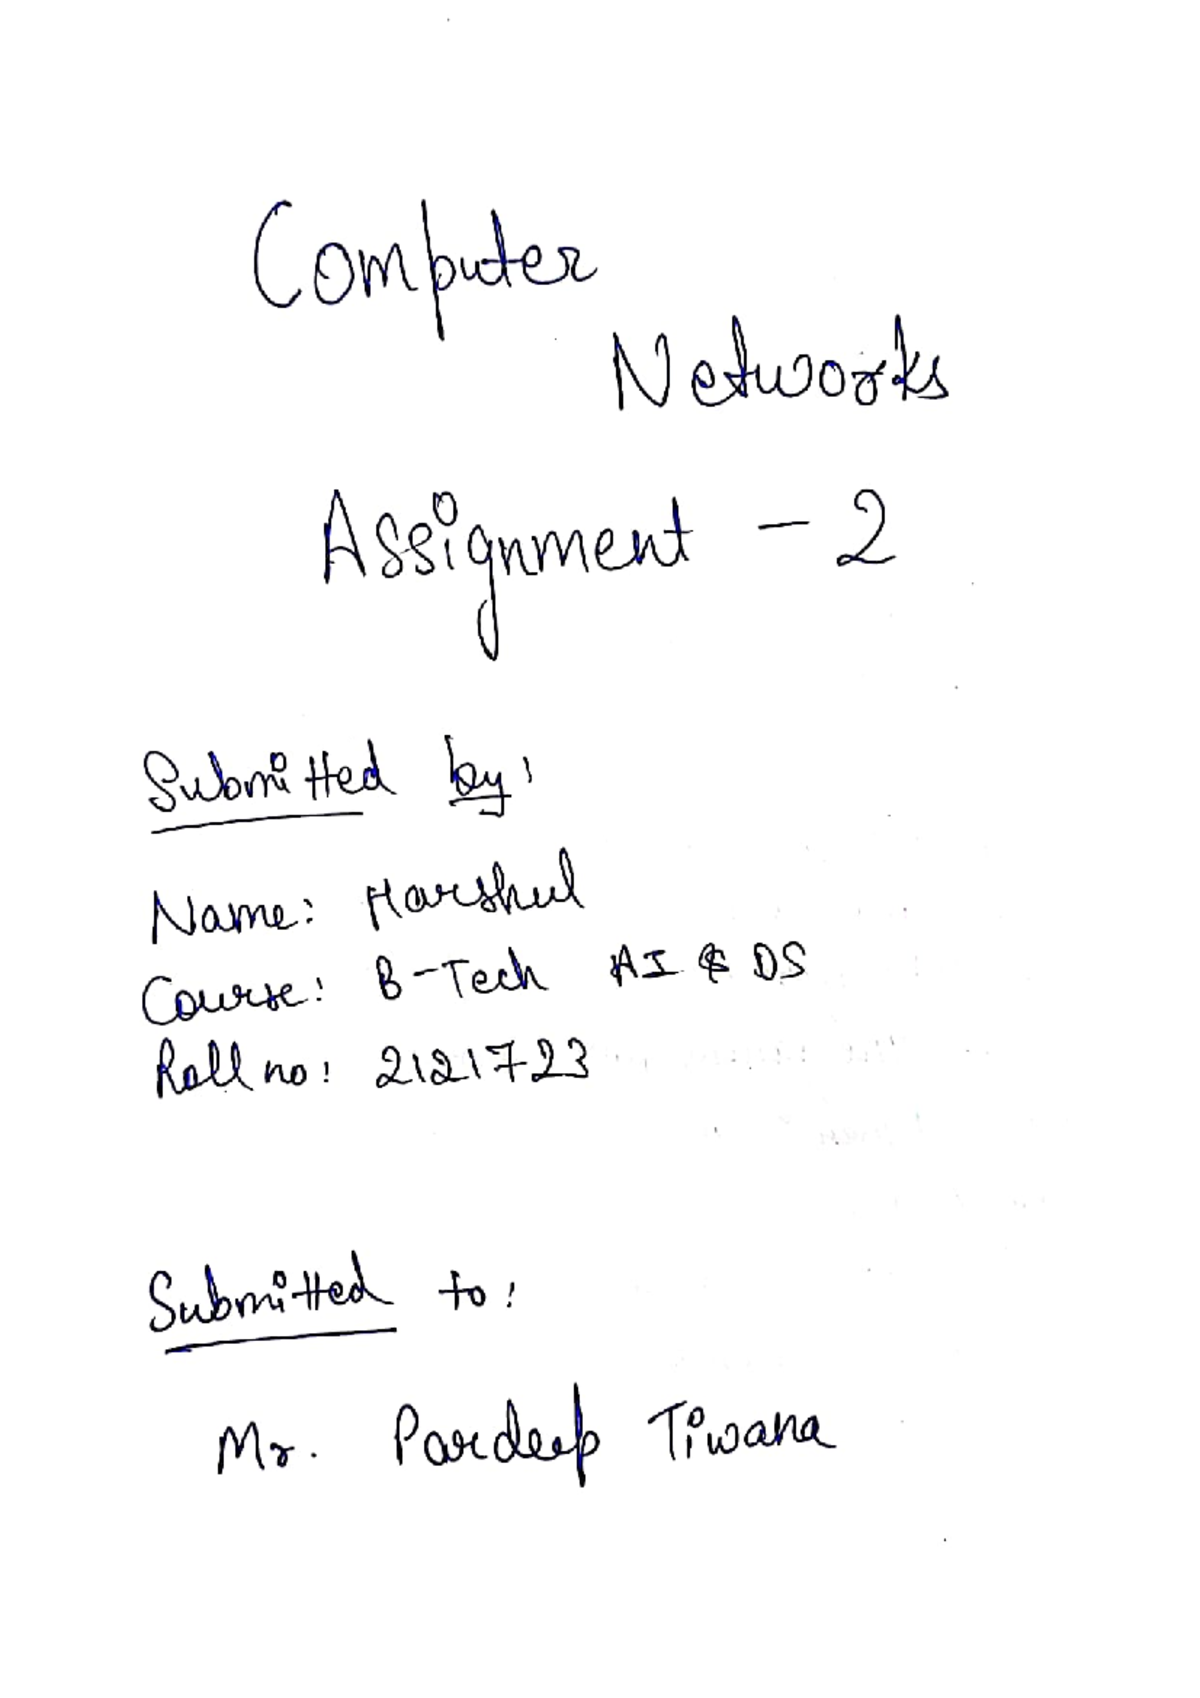 Computer
Networks
Assignment - 2
Submitted by:
Name: Harshul
Course: B-Tech AI & DS
Roll no: 2121723
Submitted to:
Mr. Pardeep Tiwana